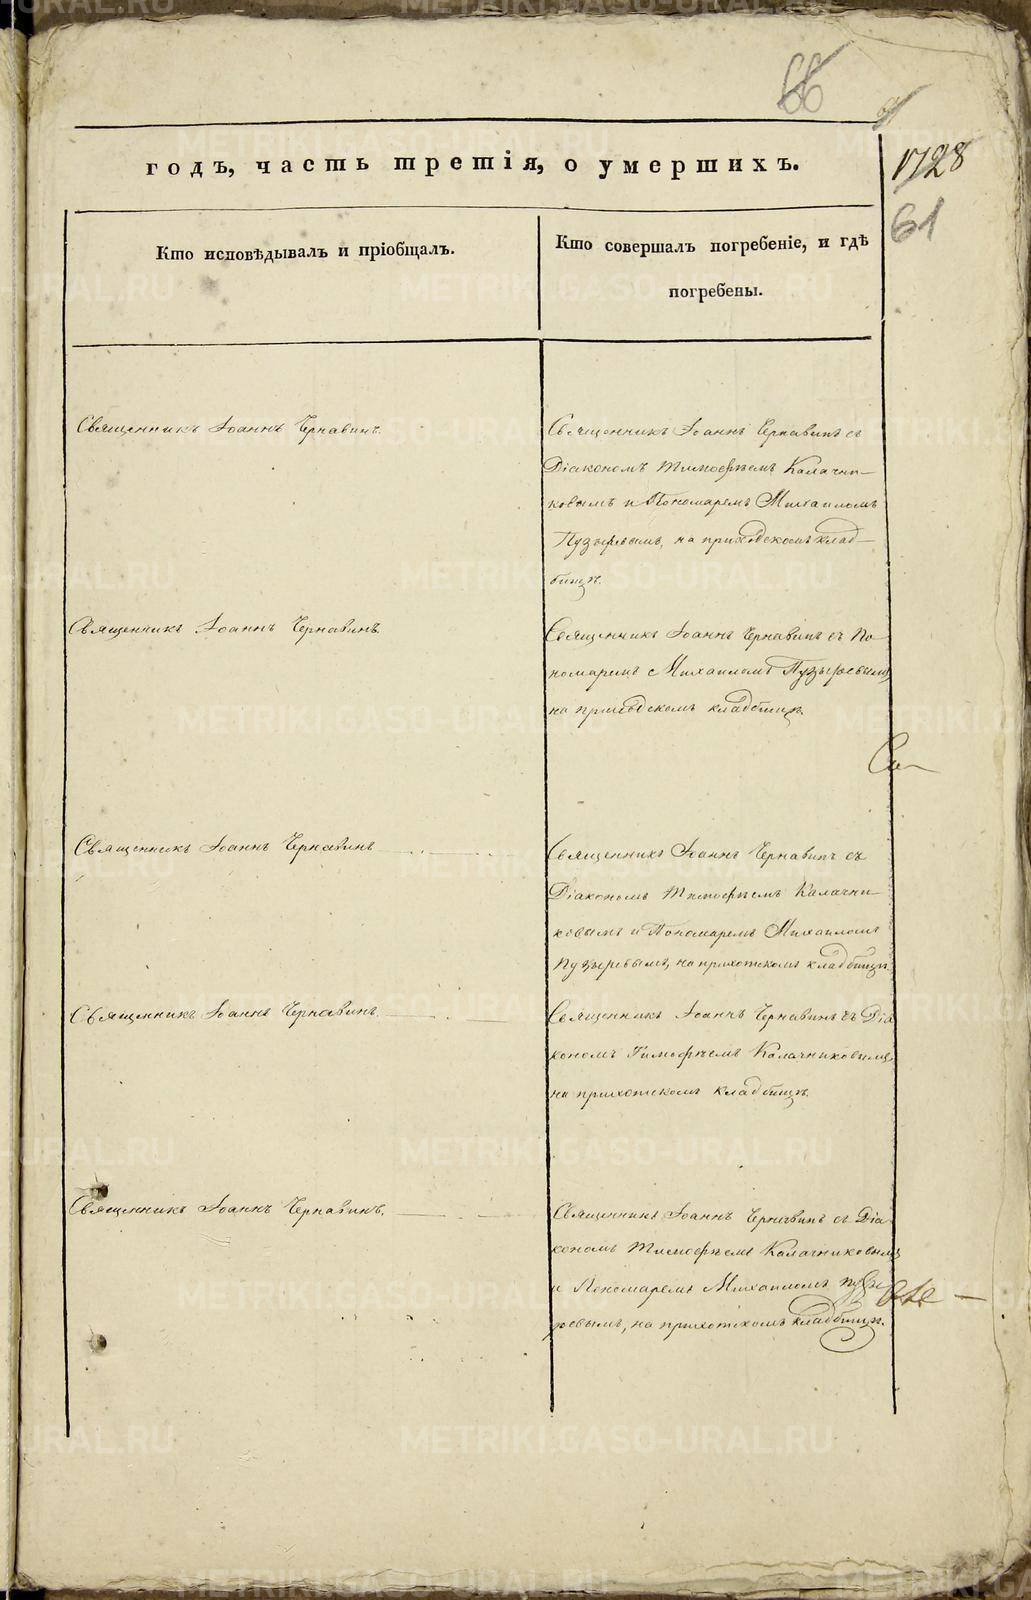 66
1728
61
годъ, часть третія, о умершихъ.
Кто исповѣдывалъ и пріобщалъ.
Кто совершалъ погребеніе, и гдѣ
погребены.
Священникъ Іоаннъ Чернавинъ.
Священникъ Іоаннъ Чернавинъ съ
Діакономъ Тимофѣемъ Калачни-
ковымъ и Пономаремъ Михаиломъ
Пузыревымъ, на приходскомъ клад-
бищѣ.
Священникъ Іоаннъ Чернавинъ.
Священникъ Іоаннъ Чернавинъ съ По
номаремъ с Михаиломъ Пузыревымъ
на приходскомъ кладбищѣ.
Священникъ Іоаннъ Чернавинъ
Священникъ Іоаннъ Чернавинъ съ
Діакономъ Тимофѣемъ Калачни
ковымъ и Пономаремъ Михаиломъ
Пузыревымъ, на прихотскомъ кладбищѣ.
Священникъ Іоаннъ Чернавинъ.
Священникъ Іоаннъ Чернавинъ съ Діа
кономъ Тимофѣемъ Калачниковымъ
на прихотскомъ кладбищѣ.
Священникъ Іоаннъ Чернавинъ.
Священникъ Іоаннъ Чернавинъ съ Діа
кономъ Тимофѣемъ Калачниковымъ
и Пономаремъ Михаиломъ Пузы
ревымъ, на прихотскомъ кладбищѣ.
METRIKI.GASO-URAL.RU